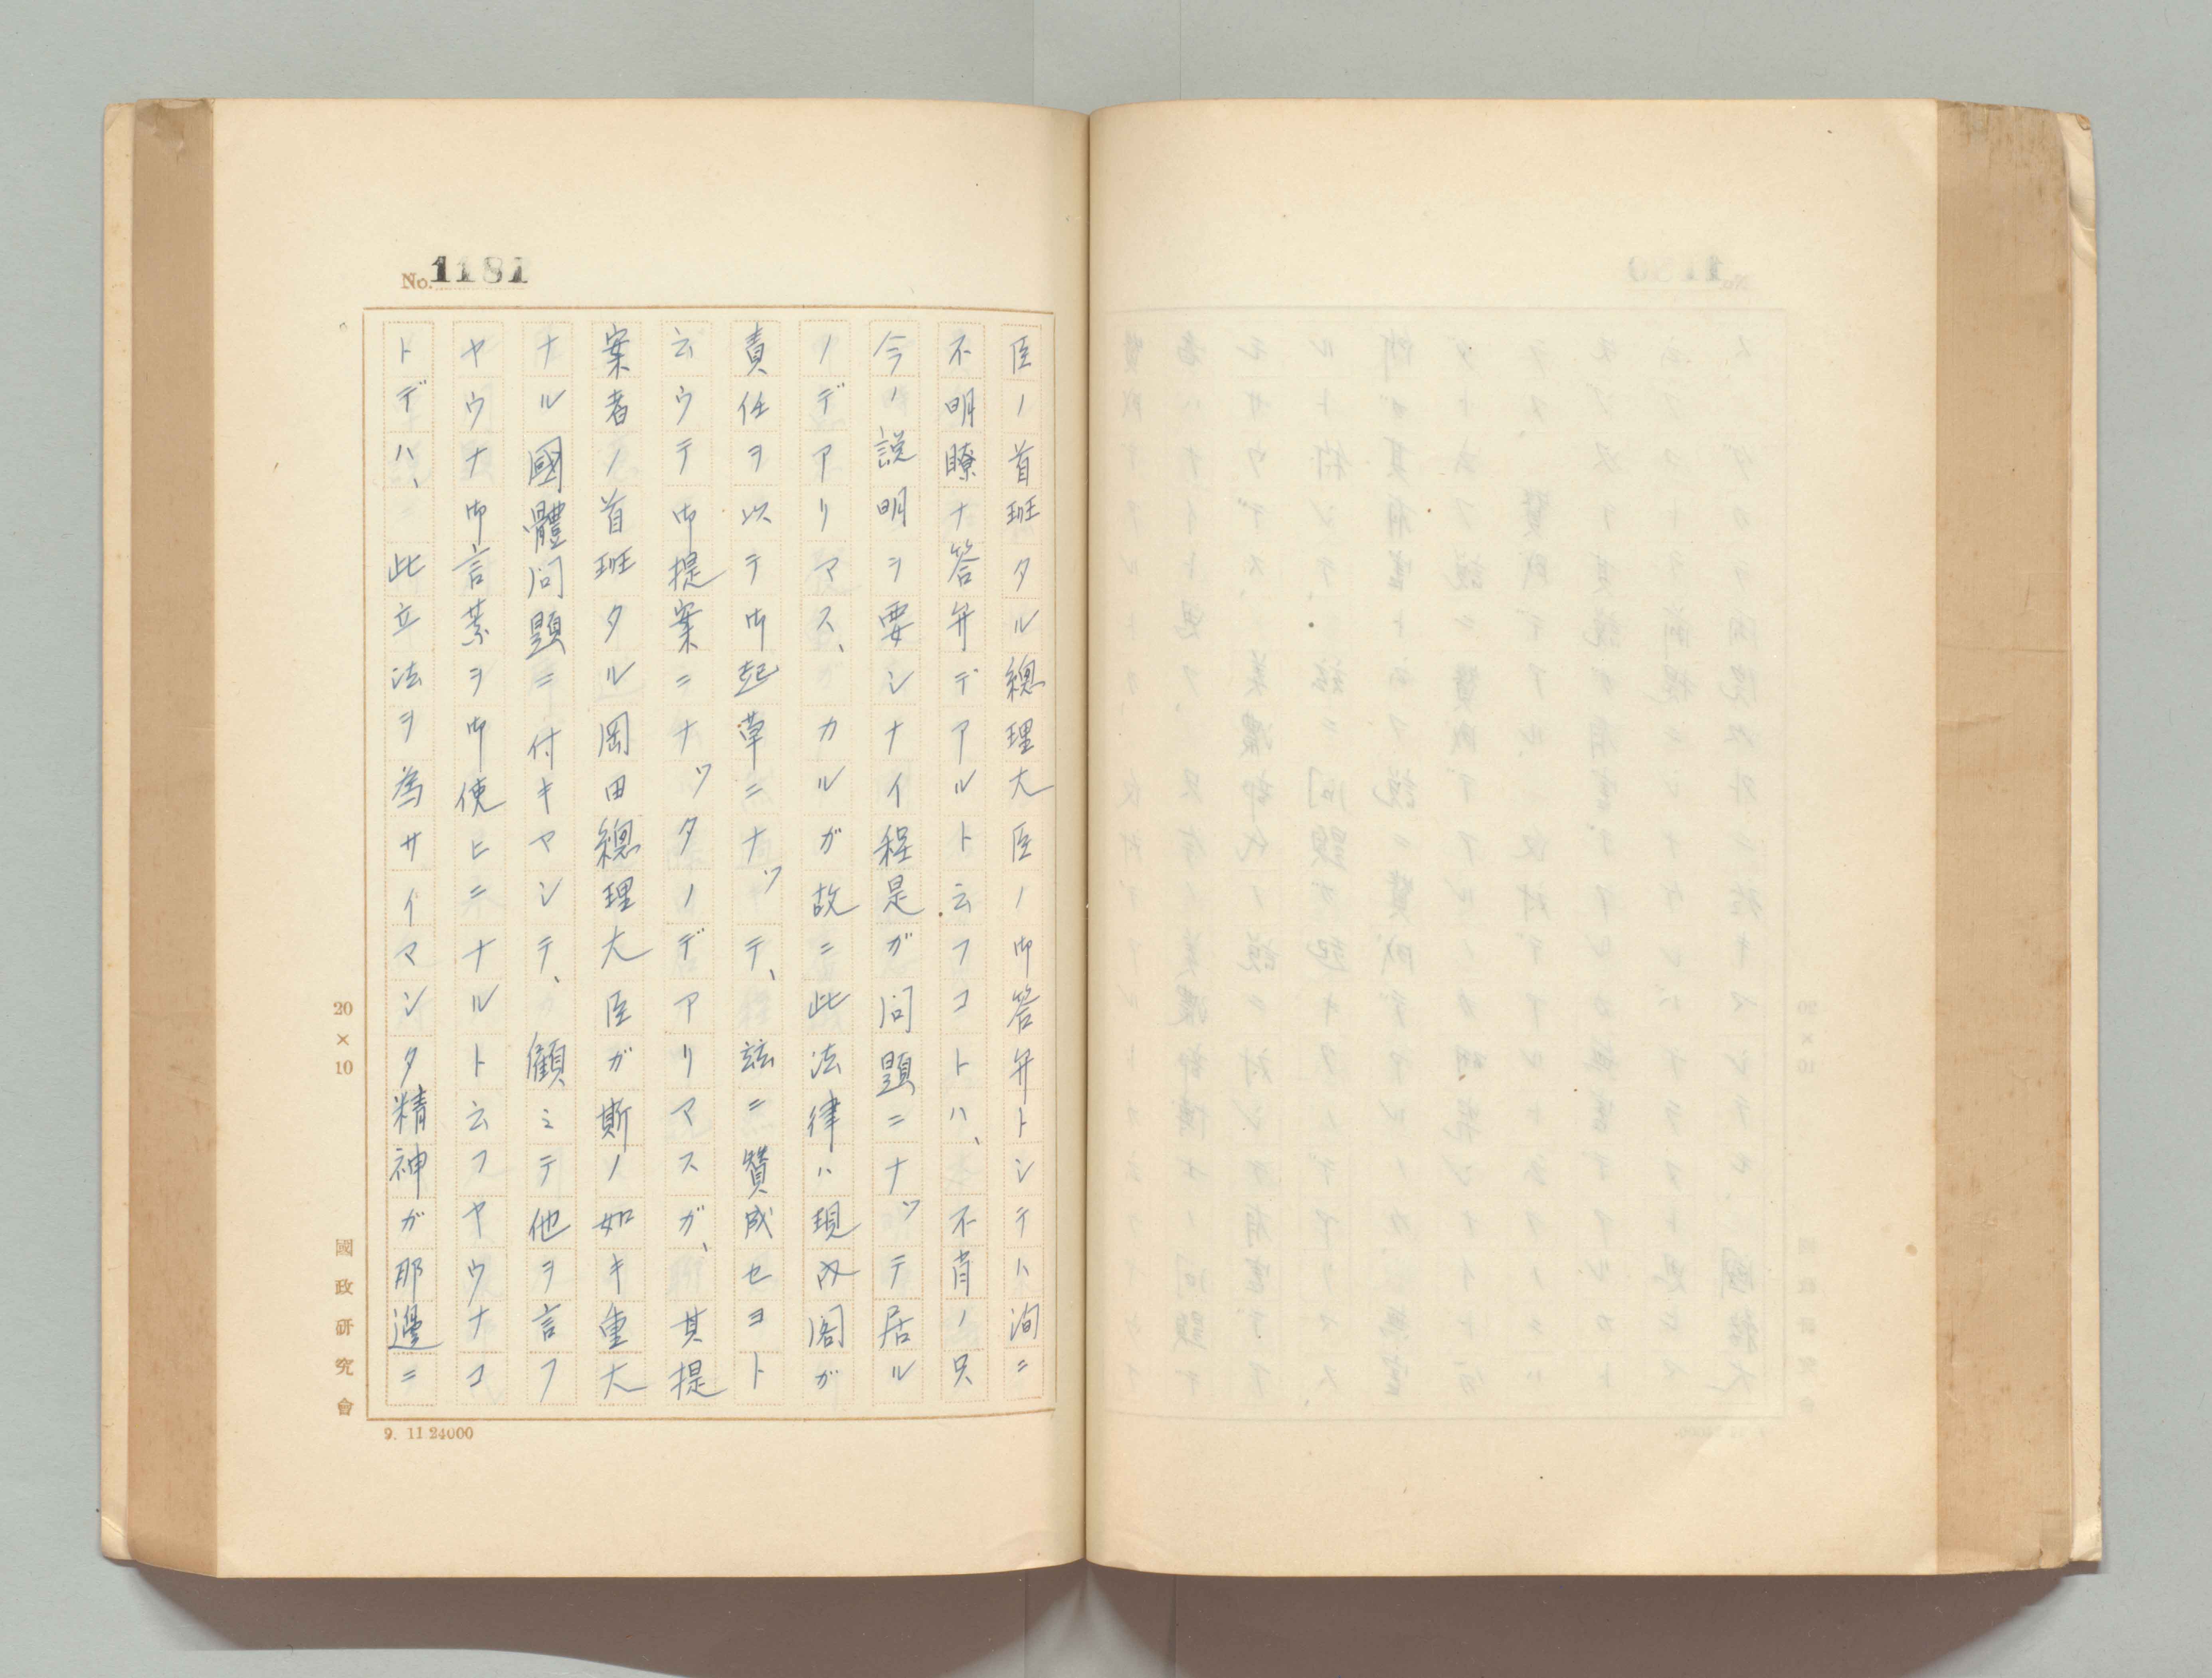 No. 1181
臣ノ首班タル總理大臣ノ御答弁トシテハ洵ニ
不明瞭ナ答弁デアルト云フコトハ、不肖ノ只
今ノ説明ヲ要シナイ程是ガ問題ニナッテ居ル
ノデアリマス、カルガ故ニ此法律ハ現内閣ガ
責任ヲ以テ御起草ニナッテ、茲ニ賛成セヨト
云ウテ御提案ニナッタノデアリマスガ、其提
案者ノ首班タル岡田總理大臣ガ斯ノ如キ重大
ナル國體問題ニ付キヤシテ、顧ミテ他ヲ言フ
ヤウナ御言葉ヲ御使ヒニナルト云フヤウナコ
トデハ、此立法ヲ為サイマシタ精神ガ那邊ニ
20×10
國政研究會
9. 11 24000